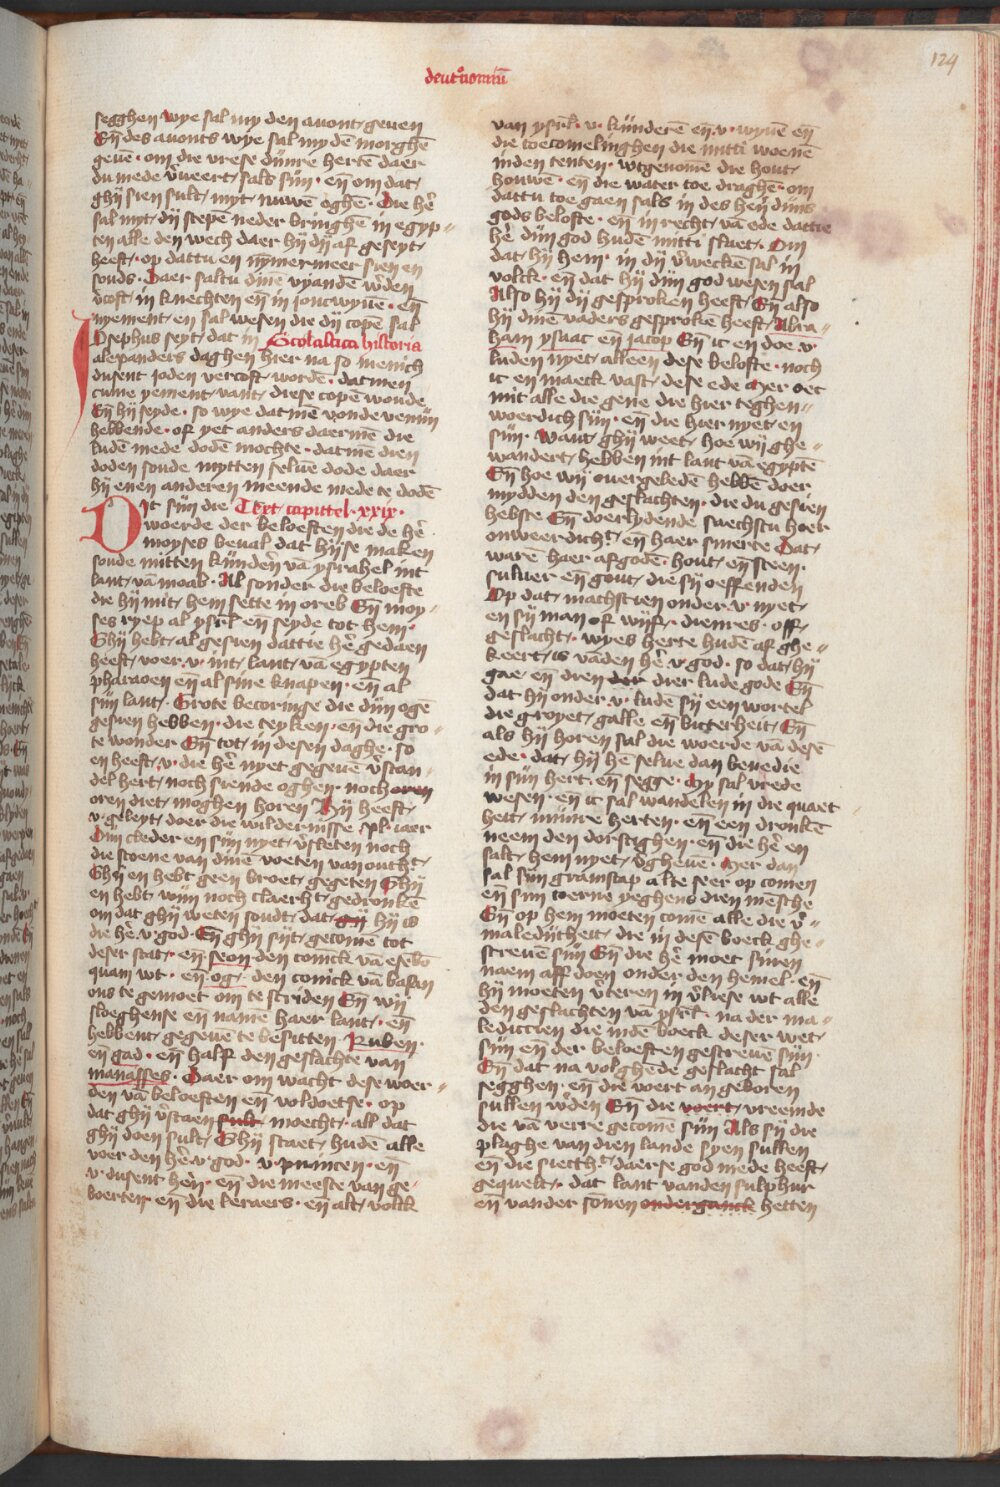 124
deut'onomiū
segghen wye sal my den auont geuen
Eñ des auonts wye sal my dē morghē
geuē · om die vrese dijnre hertē daer
du mede v̄ueert sals sijn · eñ om dat
ghij sien sult myt nuwē oghē · Die hē
sal myt dij scepē neder bringhē in egyp
ten alle den wech daer hij dij af geseyt
heeft · op dattu en nymermeer sien en
souds · Daer saltu dinē vyandē w̄den
v̄coft in knechten eñ in joncwyuē · eñ
nyement en sal wesen die dij copē sal
Josephus seyt dat in Scolastica historia
alexanders daghen hier na so menich
dusent joden vercoft wordē · datmen
cume yement vant diese copē woude
Eñ hij seyde · so wye datmē vonde venijn
hebbende · of yet anders daermē die
ludē mede dodē mochte · datmē dien
doden soude mytten seluē dode daer
hij enen anderen meende mede te dodē
Dit sijn die Text capittel · xxix ·
woerde der beloeften die de hē
moyses beual dat hijse maken
soude mitten kīnderē vā ysrahel int
lant vā moab · Al sonder die beloefte
die hij mit hem sette in oreb Eñ moy
ses ryep al ysrl̄ eñ seyde tot hem ·
Ghij hebt al gesien dattie hē gedaen
heeft voer · v · int lant vā egypten
pharaoen eñ al sine knapen · eñ al
sijn lant · Grote becoringe die dijn ogē
gesien hebben · die teyken · eñ die gro
te wonder Eñ tot in desen daghe · so
en heeft · v · die hē nyet gegeuē v̄stan
del hert noch siende oghen · noch oren
oren diet moghen horen Hij heeft
v geleyt doer die wildernisse · xl · iaer
Dijn cleder en sijn nyet v̄sleten noch
die scoene van dinē voeten van outh't
Ghij en hebt geen broet gegeten Ghij
en hebt wijn noch claerh't gedronkē
om dat ghij weten soudt dat gij hij is
die hē · v · god · Eñ ghij sijt gecomē tot
deser stat · eñ · seon den conick vā esebō
quam wt · eñ · og · den conick vā basan
ons te gemoet om te striden Eñ wij
sloeghense eñ namē haer lant · eñ
hebbent gegeuē te besitten · Ruben ·
eñ gad · eñ half den geslachte van
manasses · Daer om wacht dese woer
den vā beloeften eñ voldoetse · op
dat ghij v̄staen sult moecht all dat
ghij doen sult Ghij staet hudē alle
voer den hē · v · god · v princen · eñ
v · dusent hēn · eñ die meeste van ge
boerten · eñ die leraers · eñ alt volck
van ysrl̄ · v · kijnderē eñ · v · wyuē eñ
die toecomelinghen die mitti woenē
inden tenten · wtgenomē die hout
houwē · eñ die water toe draghē · om
dattu toe gaen sals in des hēn dijns
gods belofte · eñ in recht vā ede dattie
hē dijn god hudē mitti sluet · Om
dat hij hem · in dij v̄weckē sal in
volck · eñ dat hij dijn god wesen sal
Also hij dij gesproken heeft Eñ also
hij dinē vaders gesprokē heeft Abra
ham ysaac eñ jacop Eñ ic en doe · v
luden nyet alleen dese belofte · noch
ic en maeck vast dese ede Mer oec
mit alle die gene die hier teghen
woerdich sijn · eñ die hier nyet en
sijn · Want ghij weet hoe wij ghe
wandert hebben int lant vā egypte
Eñ hoe wij ouergeledē hebbē doer
mydden den geslachten · die du gesien
hebste Eñ doerlydende saechstu hoer
onweerdich't eñ haer smerte Dat
warē haer afgodē · hout eñ steen ·
siluer eñ gout die sij oeffenden
Op dat machscien onder · v · nyet
en sij man of wijf · dienres · off
geslacht · wyes herte hudē af ghe
keert is vādē hē · v · god · so dat hij
gae · eñ dien der dier lude gode Eñ
dat hij onder · v · ludē sij een wortel
die groyet galle eñ bitterheit Eñ
als hij horen sal die woerde vā desē
ede · dat hij hē selue dan benedie
in sijn hert eñ segge · My sal vrede
wesen · eñ ic sal wandelen in die quaet
heit mijnre herten · eñ een dronkē
neem den dorstighen · eñ die hē en
salt hem nyet v̄gheuē · Mer dan
sal sijn gramscap alte seer op comen
eñ sijn toerne yeghens dien mēsche
Eñ op hem moeten comē alle die v̄
maledijtheit die in desē boeck ghe
screuē sijn Eñ die hē moet sinen
naem aff doen onder den hemel · eñ
hij moeten v̄teren in v̄liese wt alle
den geslachten vā ysrl̄ · na der ma
ledictien die indē boeck deser wet
sijn eñ der beloeften gescreuē sijn ·
Eñ dat na volghēde geslacht sal
segghen · eñ die voert an geboren
sullen w̄den Eñ die voert vreemde
die vā verre gecomē sijn Als sij die
plaghe van dien lande syen sullen
eñ die siecth't daerse god mede heeft
gequelt · dat lant vanden sulphur
eñ vander sōnen onderganck hetten